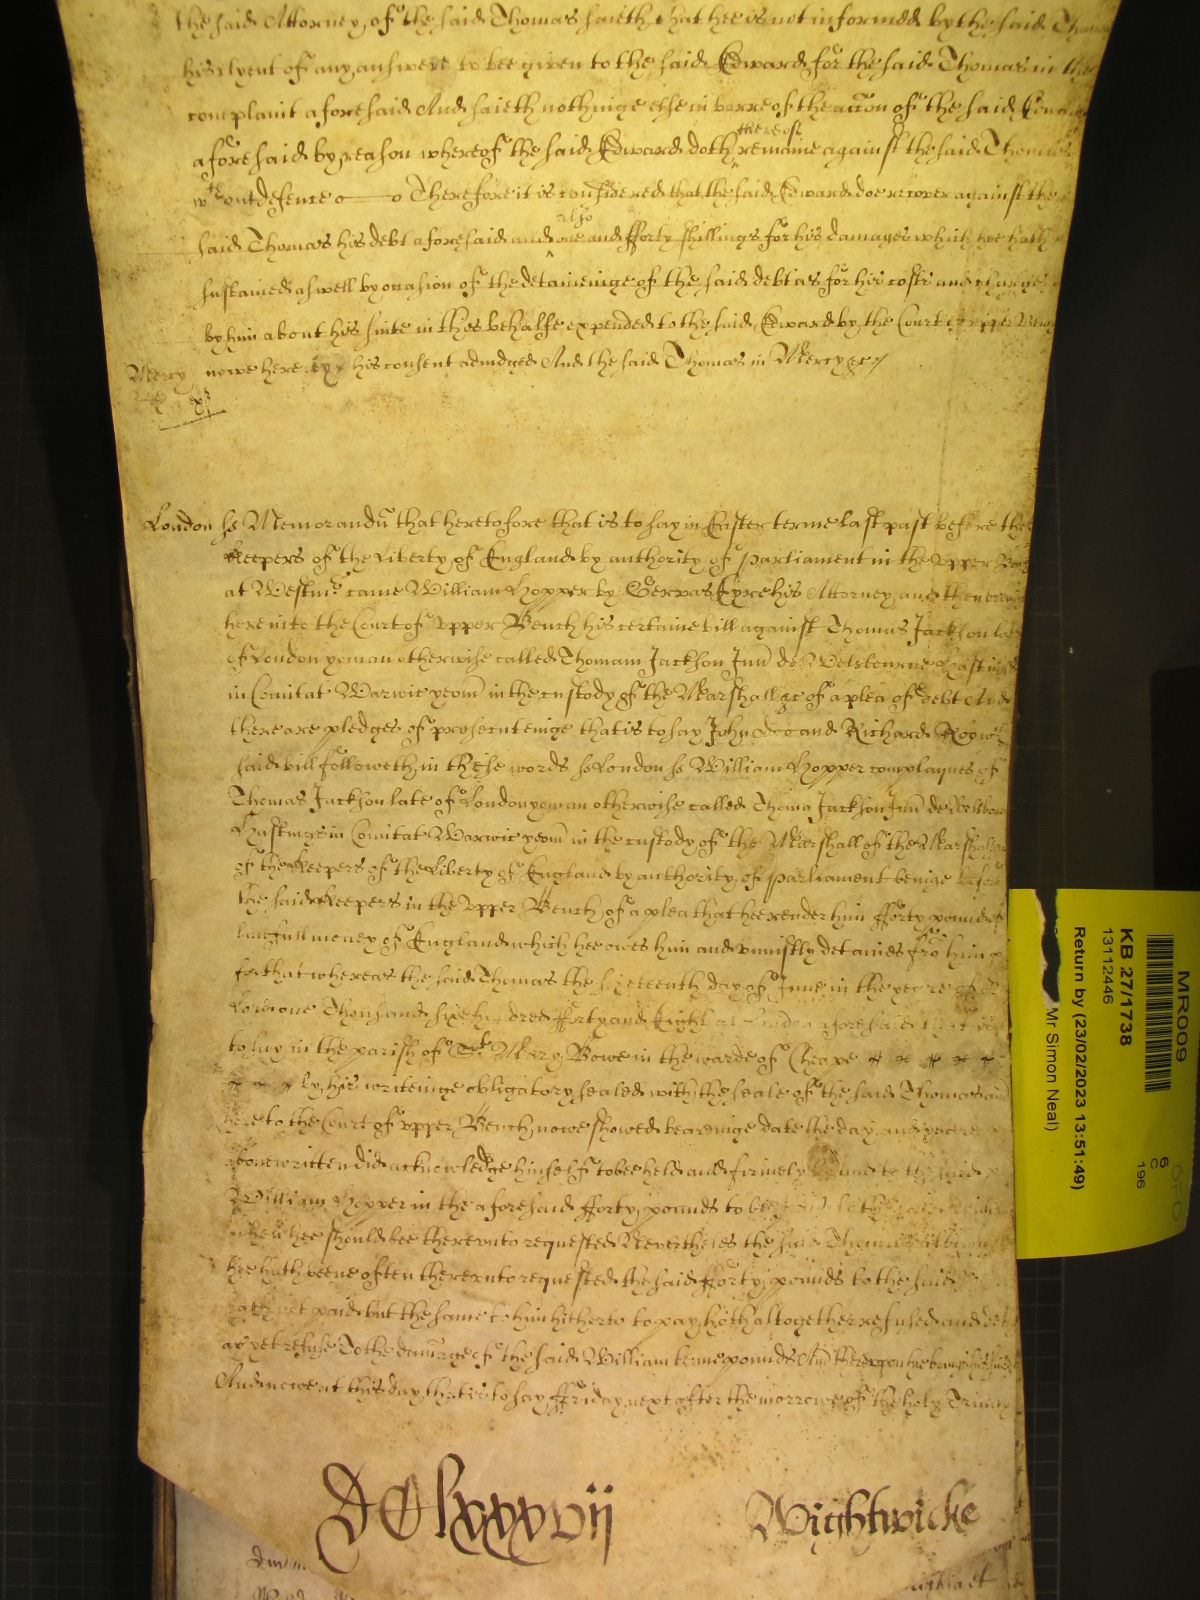 the said Attorney of the said Thomas saieth that hee is not informed by the said Thomas
his clyent of any answere to bee given to the said Edward for the said Thomas in the
complaint aforesaid And saieth nothinge else in barre of the accon of the said Edward
aforesaid by reason whereof the said Edward doth thereof remaine against the said Thomas
wthout defence Therefore it is considered that the said Edward doe recover against the
said Thomas his debt aforesaid and also and fforty shillings for his damages which hee hath
sustained aswell by occasion of the detaineinge of the said debt as for his costs and charges
by him about his suite in this behalfe expended to the said Edward by the Court of vpper Bench
Mercy nowe here by his consent adiudged And the said Thomas in Mercy &c
London ss Memorandu that heretofore that is to say in Easter terme last past before the
Keepers of the Liberty of England by authority of Parliament in the vpper Bench
at Westmr came William Hopper by Gervas Eyre his Attorney and then
here into the Court of vpper Bench his certaine bill against Thomas Jackson late
of London yoman otherwise called Thomam Jackson Jun de Welsbourne Hastings
in Comitat Warwic yeom in the custody of the Marshall &c of a plea of debt And
there are pledges of prosecuteinge that is to say John Doe and Richard Roe wch
said bill followeth in these words ss London ss William Hopper complaynes of
Thomas Jackson late of London yoman otherwise called Thoma Jackson Jun de Welsbourne
Hastinge in Comitat Warwic yeom in the custody of the Marshall of the Marshalsey
of the Keepers of the Liberty of England by authority of Parliament beinge before
the said Keepers in the vpper Bench of a plea that hee render him fforty pounds of
lawfull money of England which hee owes him and vniustly detaines fro him
for that whereas the said Thomas the sixteenth day of June in the yeare of
Lord one Thousand six hundred fforty and Eight at London aforesaid that is
to say in the parish of St Mary Bowe in the warde of Cheape
by his writeinge obligatory sealed with the seale of the said Thomas and
here to the Court of vpper Bench nowe showed beareinge date the day and yeare
abovewritten did acknowledge himself to bee held and firmely bound to the said
William Hopper in the aforesaid fforty pounds to bee
when hee should bee therevnto requested Neverthelesse the said Thomas although
hee hath beene often therevnto requested the said fforty pounds to the said
hath not paid but the same to him hitherto to pay hath altogether refused and doth
as yet refuse To the damage of the said William tenne pounds And therevpon hee brings his suite
And nowe at this day that is to say ffriday next after the morrowe of the holy Trinity
DClxxxvij Wightwicke
MR009
KB 27/1738
13112446
Return by (23/02/2023 13:51:49)
Mr Simon Neal)
6
C
196